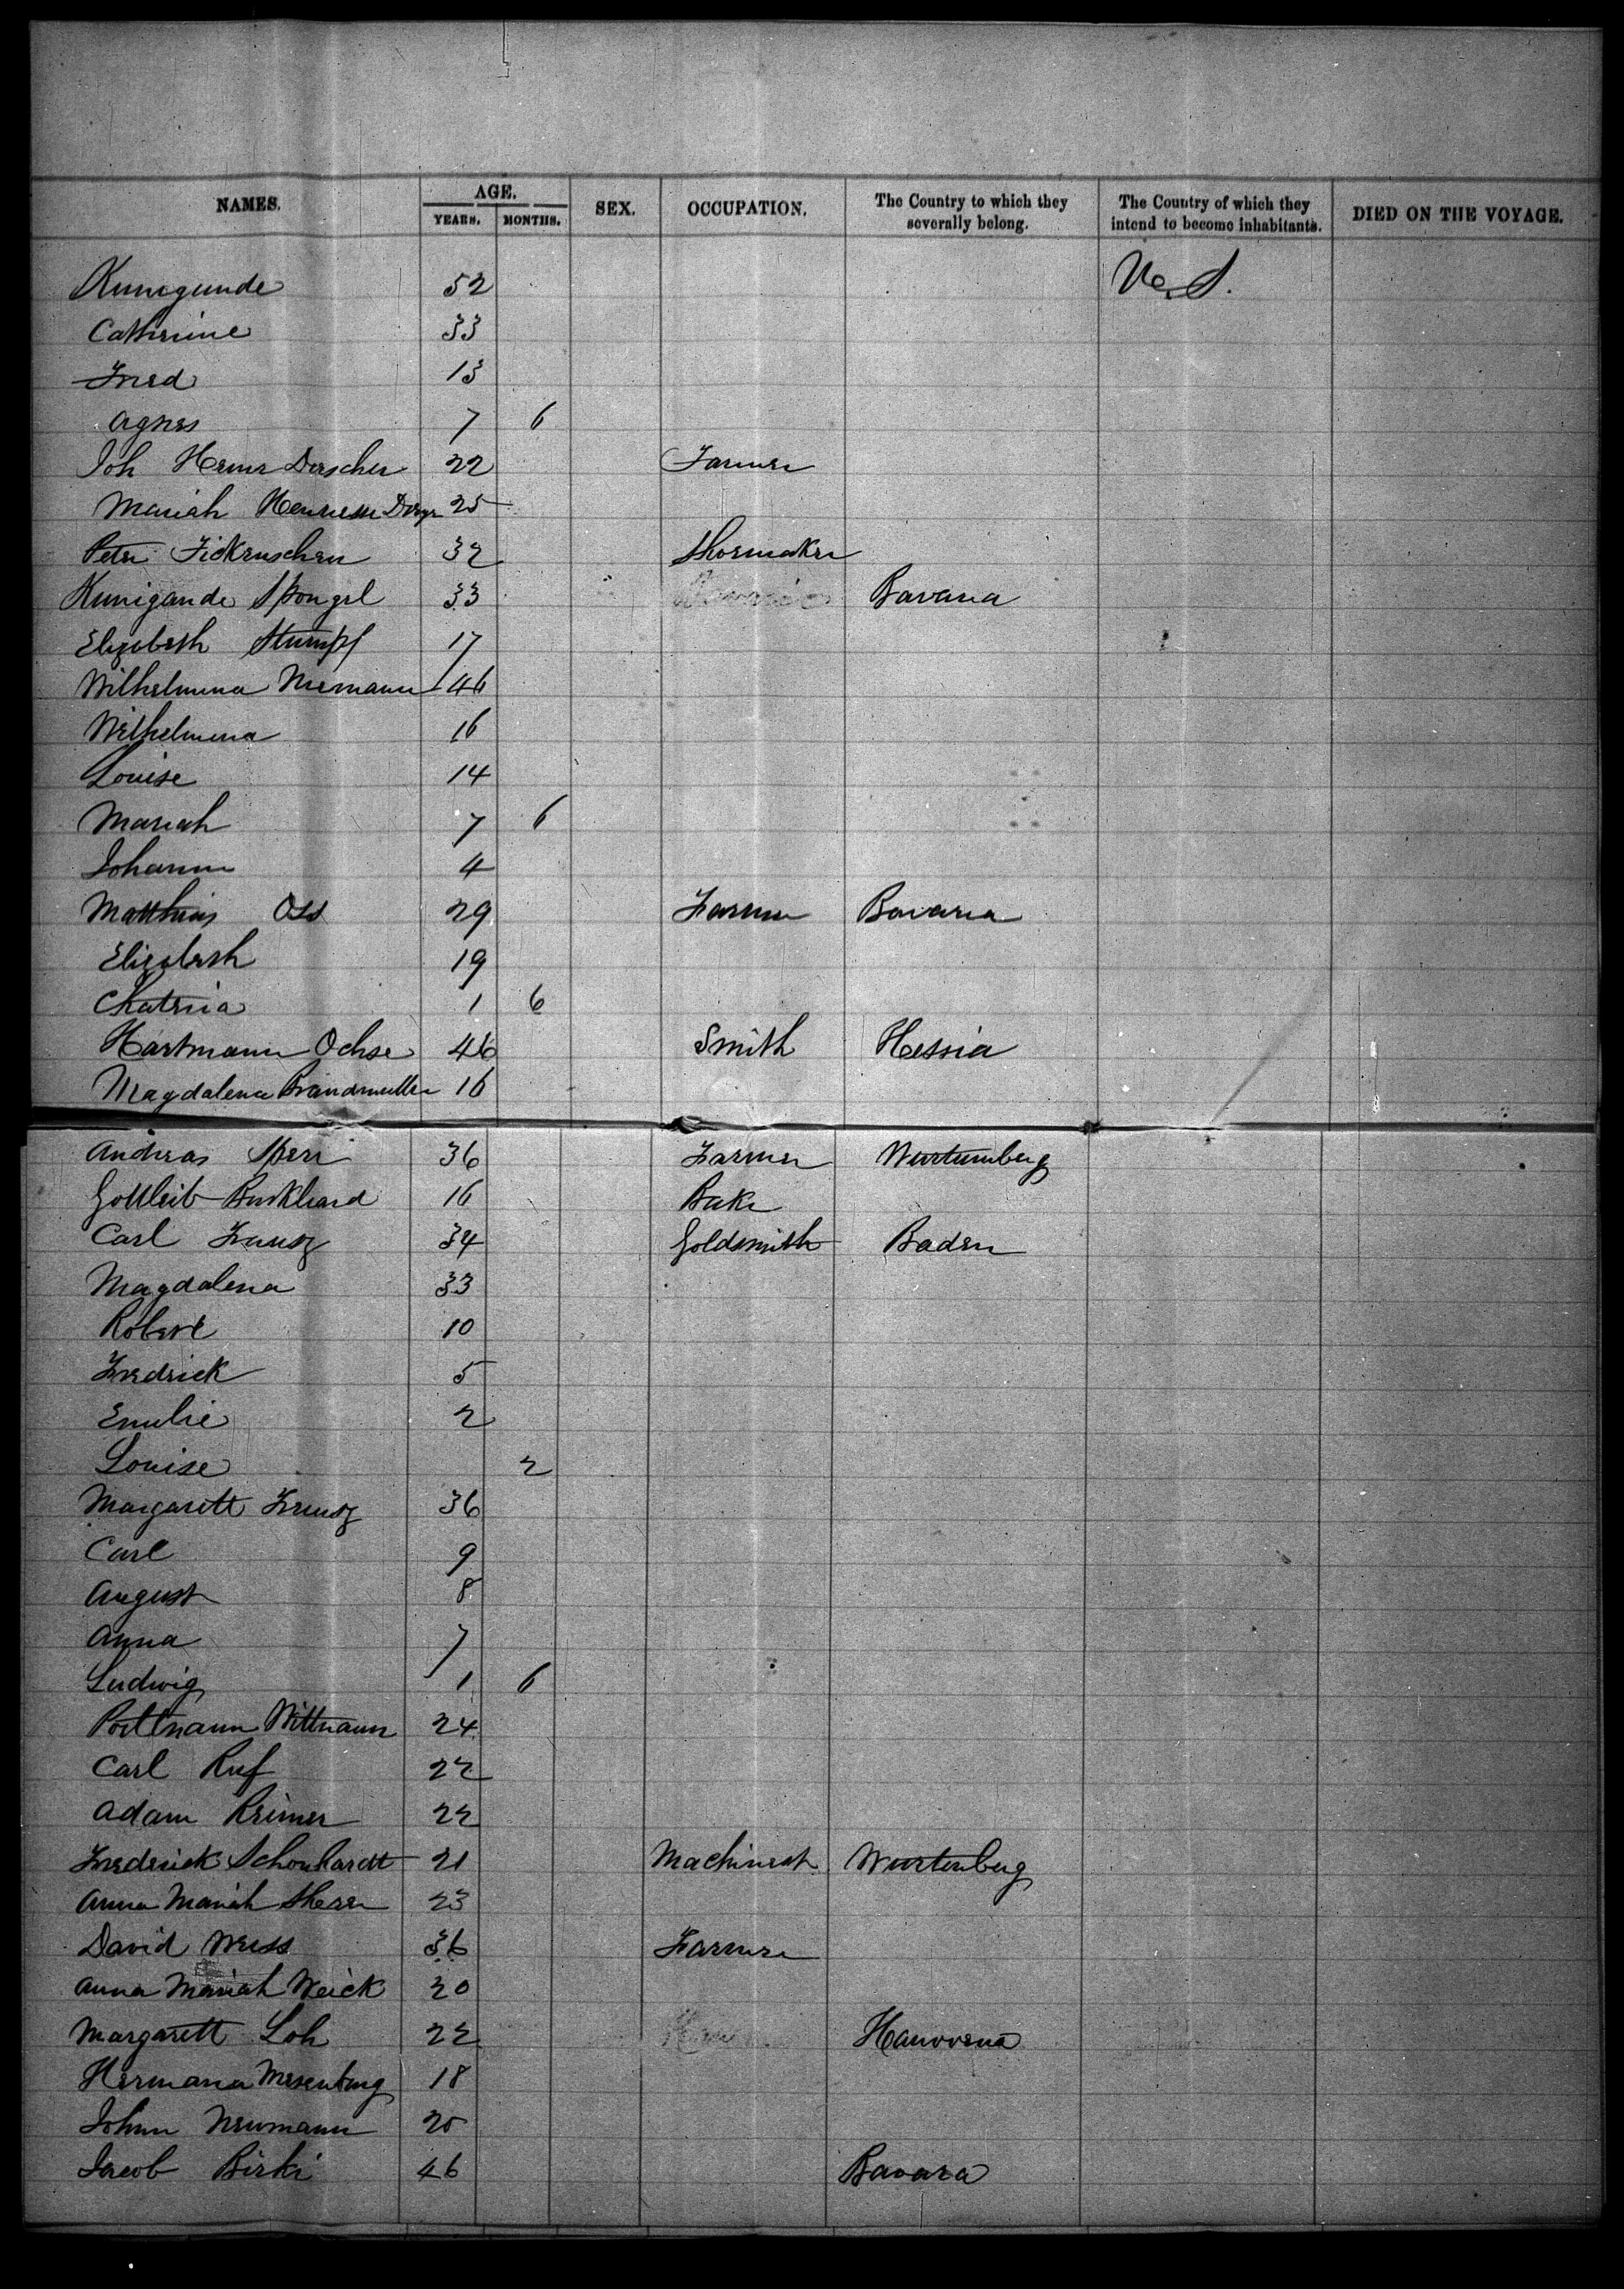 NAMES. AGE. SEX. OCCUPATION. The Country to which they severally belong. The Country of which they intend to become inhabitants. DIED ON THE VOYAGE.
YEARS. MONTHS.
Kunegunde 52 U.S.
Catherine 33
Fred 13
Agnes 7 6
Joh Derscher 22 Farmer
Mariah 25
Peter Fickenscher 32 Shoemaker
Kunigande Spongel 33 Bavaria
Elizabeth Stumpf 17
Wilhelmina Niemann 46
Wilhelmina 16
Louise 14
Mariah 7 6
Johann 4
Matthias Oss 29 Farmer Bavaria
Elizabeth 19
Chatrina 1 6
Hartmann Ochse 46 Smith Hessia
Magdalena Brandmuller 16
Andreas Sperr 36 Farmer Wurtumberg
Gottleib Burkheard 16 Baker
Carl 34 Goldsmith Baden
Magdalena 33
Robert 10
Fredrick 5
Emilie 2
Louise 2
Margarett 36
Carl 9
August 8
Anna 7
Ludwig 1 6
Wittmann 24
Carl Ruf 22
Adam Reimer 22
Fredrick Schonhardt 21 Machinest Wurtenberg
Anna Mariah 23
David Weiss 36 Farmer
Anna Mariah Weick 20
Margarett Loh 22 Hannovena
Hermana Mesenburg 18
Johnn Newmann 20
Jacob Birki 46 Bavara